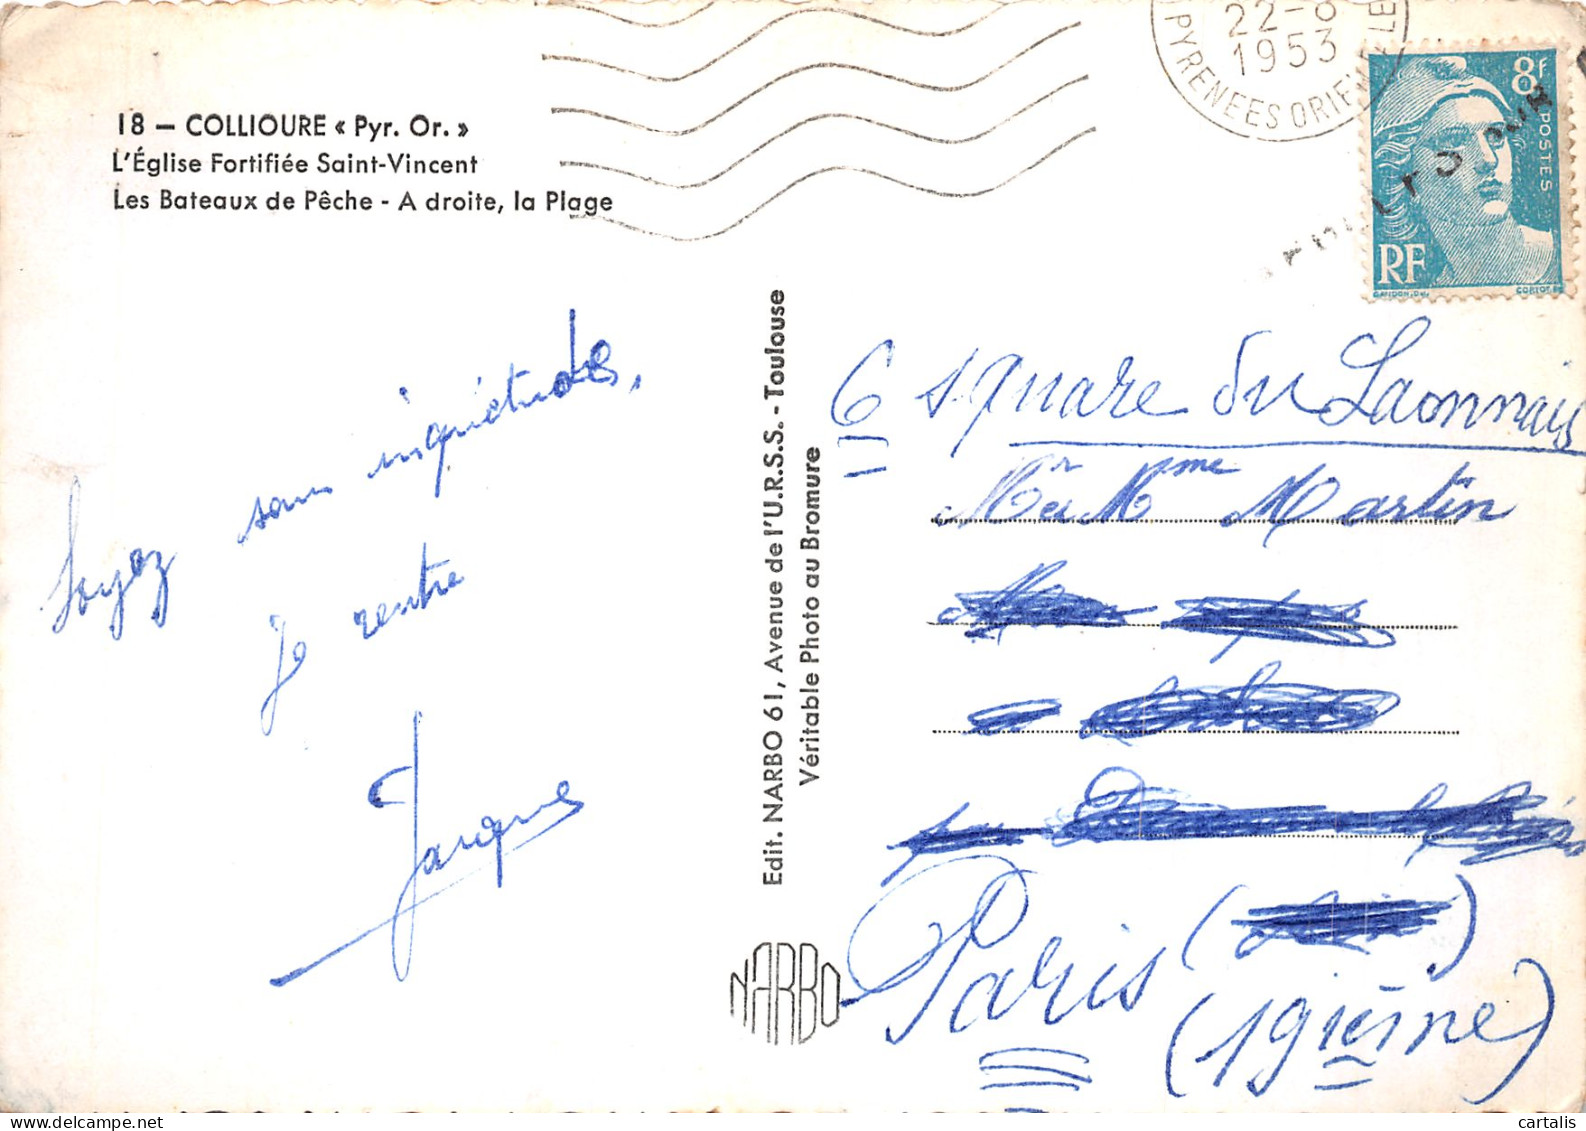 18 — COLLIOURE « Pyr. Or. »
L'Église Fortifiée Saint-Vincent
Les Bateaux de Pêche - A droite, la Plage
22-8
1953
PYRENEES ORIEN LE
8f
POSTES
RF
GANDON
CORTOT
Soyez sans inquiétudes,
je rentre
Jacques
Edit. NARBO 61, Avenue de l'U.R.S.S. - Toulouse
Véritable Photo au Bromure
NARBO
6 square du Laonnais
Mr et Mme Martin
Paris
(19ième)
cartalis